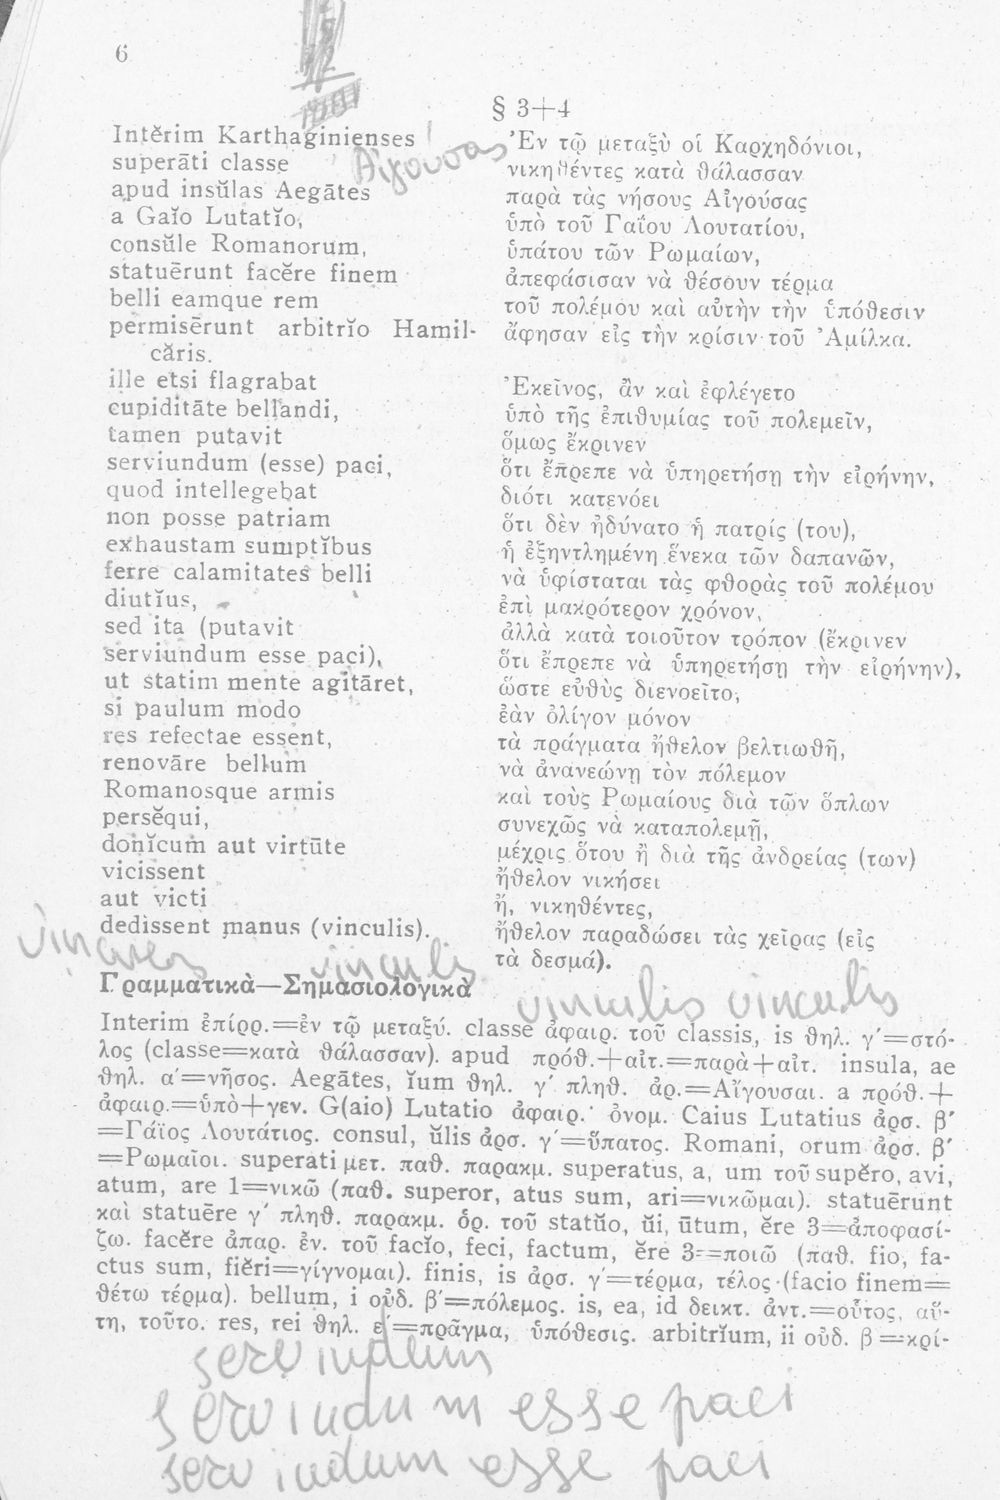 6
§ 3+4
Intĕrim Karthaginienses
superāti classe
apud insŭlas Aegātes
a Gaĭo Lutatĭo,
consŭle Romanorum,
statuērunt facĕre finem
belli eamque rem
permisērunt arbitrĭo Hamil-
căris.
ille etsi flagrabat
cupiditāte bellandi,
tamen putavit
serviundum (esse) paci,
quod intellegebat
non posse patriam
exhaustam sumptĭbus
ferre calamitates belli
diutĭus,
sed ita (putavit
serviundum esse paci),
ut statim mente agitāret,
si paulum modo
res refectae essent,
renovāre bellum
Romanosque armis
persĕqui,
donĭcum aut virtūte
vicissent
aut victi
dedissent manus (vinculis).
Αἰγούσας
Ἐν τῷ μεταξὺ οἱ Καρχηδόνιοι,
νικηθέντες κατὰ θάλασσαν
παρὰ τὰς νήσους Αἰγούσας
ὑπὸ τοῦ Γαΐου Λουτατίου,
ὑπάτου τῶν Ρωμαίων,
ἀπεφάσισαν νὰ θέσουν τέρμα
τοῦ πολέμου καὶ αὐτὴν τὴν ὑπόθεσιν
ἄφησαν εἰς τὴν κρίσιν τοῦ Ἀμίλκα.
Ἐκεῖνος, ἂν καὶ ἐφλέγετο
ὑπὸ τῆς ἐπιθυμίας τοῦ πολεμεῖν,
ὅμως ἔκρινεν
ὅτι ἔπρεπε νὰ ὑπηρετήσῃ τὴν εἰρήνην,
διότι κατενόει
ὅτι δὲν ἠδύνατο ἡ πατρίς (του),
ἡ ἐξηντλημένη ἕνεκα τῶν δαπανῶν,
νὰ ὑφίσταται τὰς φθορὰς τοῦ πολέμου
ἐπὶ μακρότερον χρόνον,
ἀλλὰ κατὰ τοιοῦτον τρόπον (ἔκρινεν
ὅτι ἔπρεπε νὰ ὑπηρετήσῃ τὴν εἰρήνην),
ὥστε εὐθὺς διενοεῖτο,
ἐὰν ὀλίγον μόνον
τὰ πράγματα ἤθελον βελτιωθῆ,
νὰ ἀνανεώνῃ τὸν πόλεμον
καὶ τοὺς Ρωμαίους διὰ τῶν ὅπλων
συνεχῶς νὰ καταπολεμῇ,
μέχρις ὅτου ἢ διὰ τῆς ἀνδρείας (των)
ἤθελον νικήσει
ἤ, νικηθέντες,
ἤθελον παραδώσει τὰς χεῖρας (εἰς
τὰ δεσμά).
vinculis
vinculis vinculis
Γραμματικὰ—Σημασιολογικὰ
Interim ἐπίρρ.=ἐν τῷ μεταξύ. classe ἀφαιρ. τοῦ classis, is θηλ. γ΄=στό-
λος (classe=κατὰ θάλασσαν). apud πρόθ.+αἰτ.=παρὰ+αἰτ. insula, ae
θηλ. α΄=νῆσος. Aegātes, ĭum θηλ. γ΄ πληθ. ἀρ.=Αἴγουσαι. a πρόθ.+
ἀφαιρ.=ὑπὸ+γεν. G(aio) Lutatio ἀφαιρ. ὀνομ. Caius Lutatius ἀρσ. β΄
=Γάϊος Λουτάτιος. consul, ŭlis ἀρσ. γ΄=ὕπατος. Romani, orum ἀρσ. β΄
=Ρωμαῖοι. superati μετ. παθ. παρακμ. superatus, a, um τοῦ supĕro, avi,
atum, are 1=νικῶ (παθ. superor, atus sum, ari=νικῶμαι). statuērunt
καὶ statuēre γ΄ πληθ. παρακμ. ὁρ. τοῦ statŭo, ŭi, ūtum, ĕre 3=ἀποφασί-
ζω. facĕre ἀπαρ. ἐν. τοῦ facĭo, feci, factum, ĕre 3=ποιῶ (παθ. fio, fa-
ctus sum, fiĕri=γίγνομαι). finis, is ἀρσ. γ΄=τέρμα, τέλος (facio finem=
θέτω τέρμα). bellum, i οὐδ. β΄=πόλεμος. is, ea, id δεικτ. ἀντ.=οὗτος, αὕ-
τη, τοῦτο. res, rei θηλ. ε΄=πρᾶγμα, ὑπόθεσις. arbitrĭum, ii οὐδ. β΄=κρί-
serviundum
serviundum esse paci
serviundum esse paci